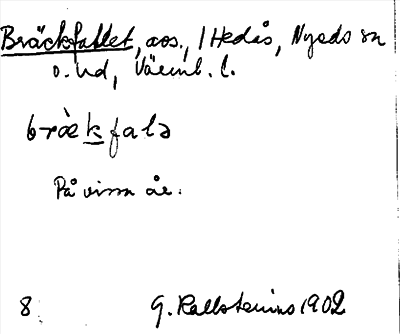 Bräckfallet, aos., / Hedås, Nyeds sn
o. hd, Värml. l.
bràkfalə
På vissa åe.
8. G. Kallstenius 1902